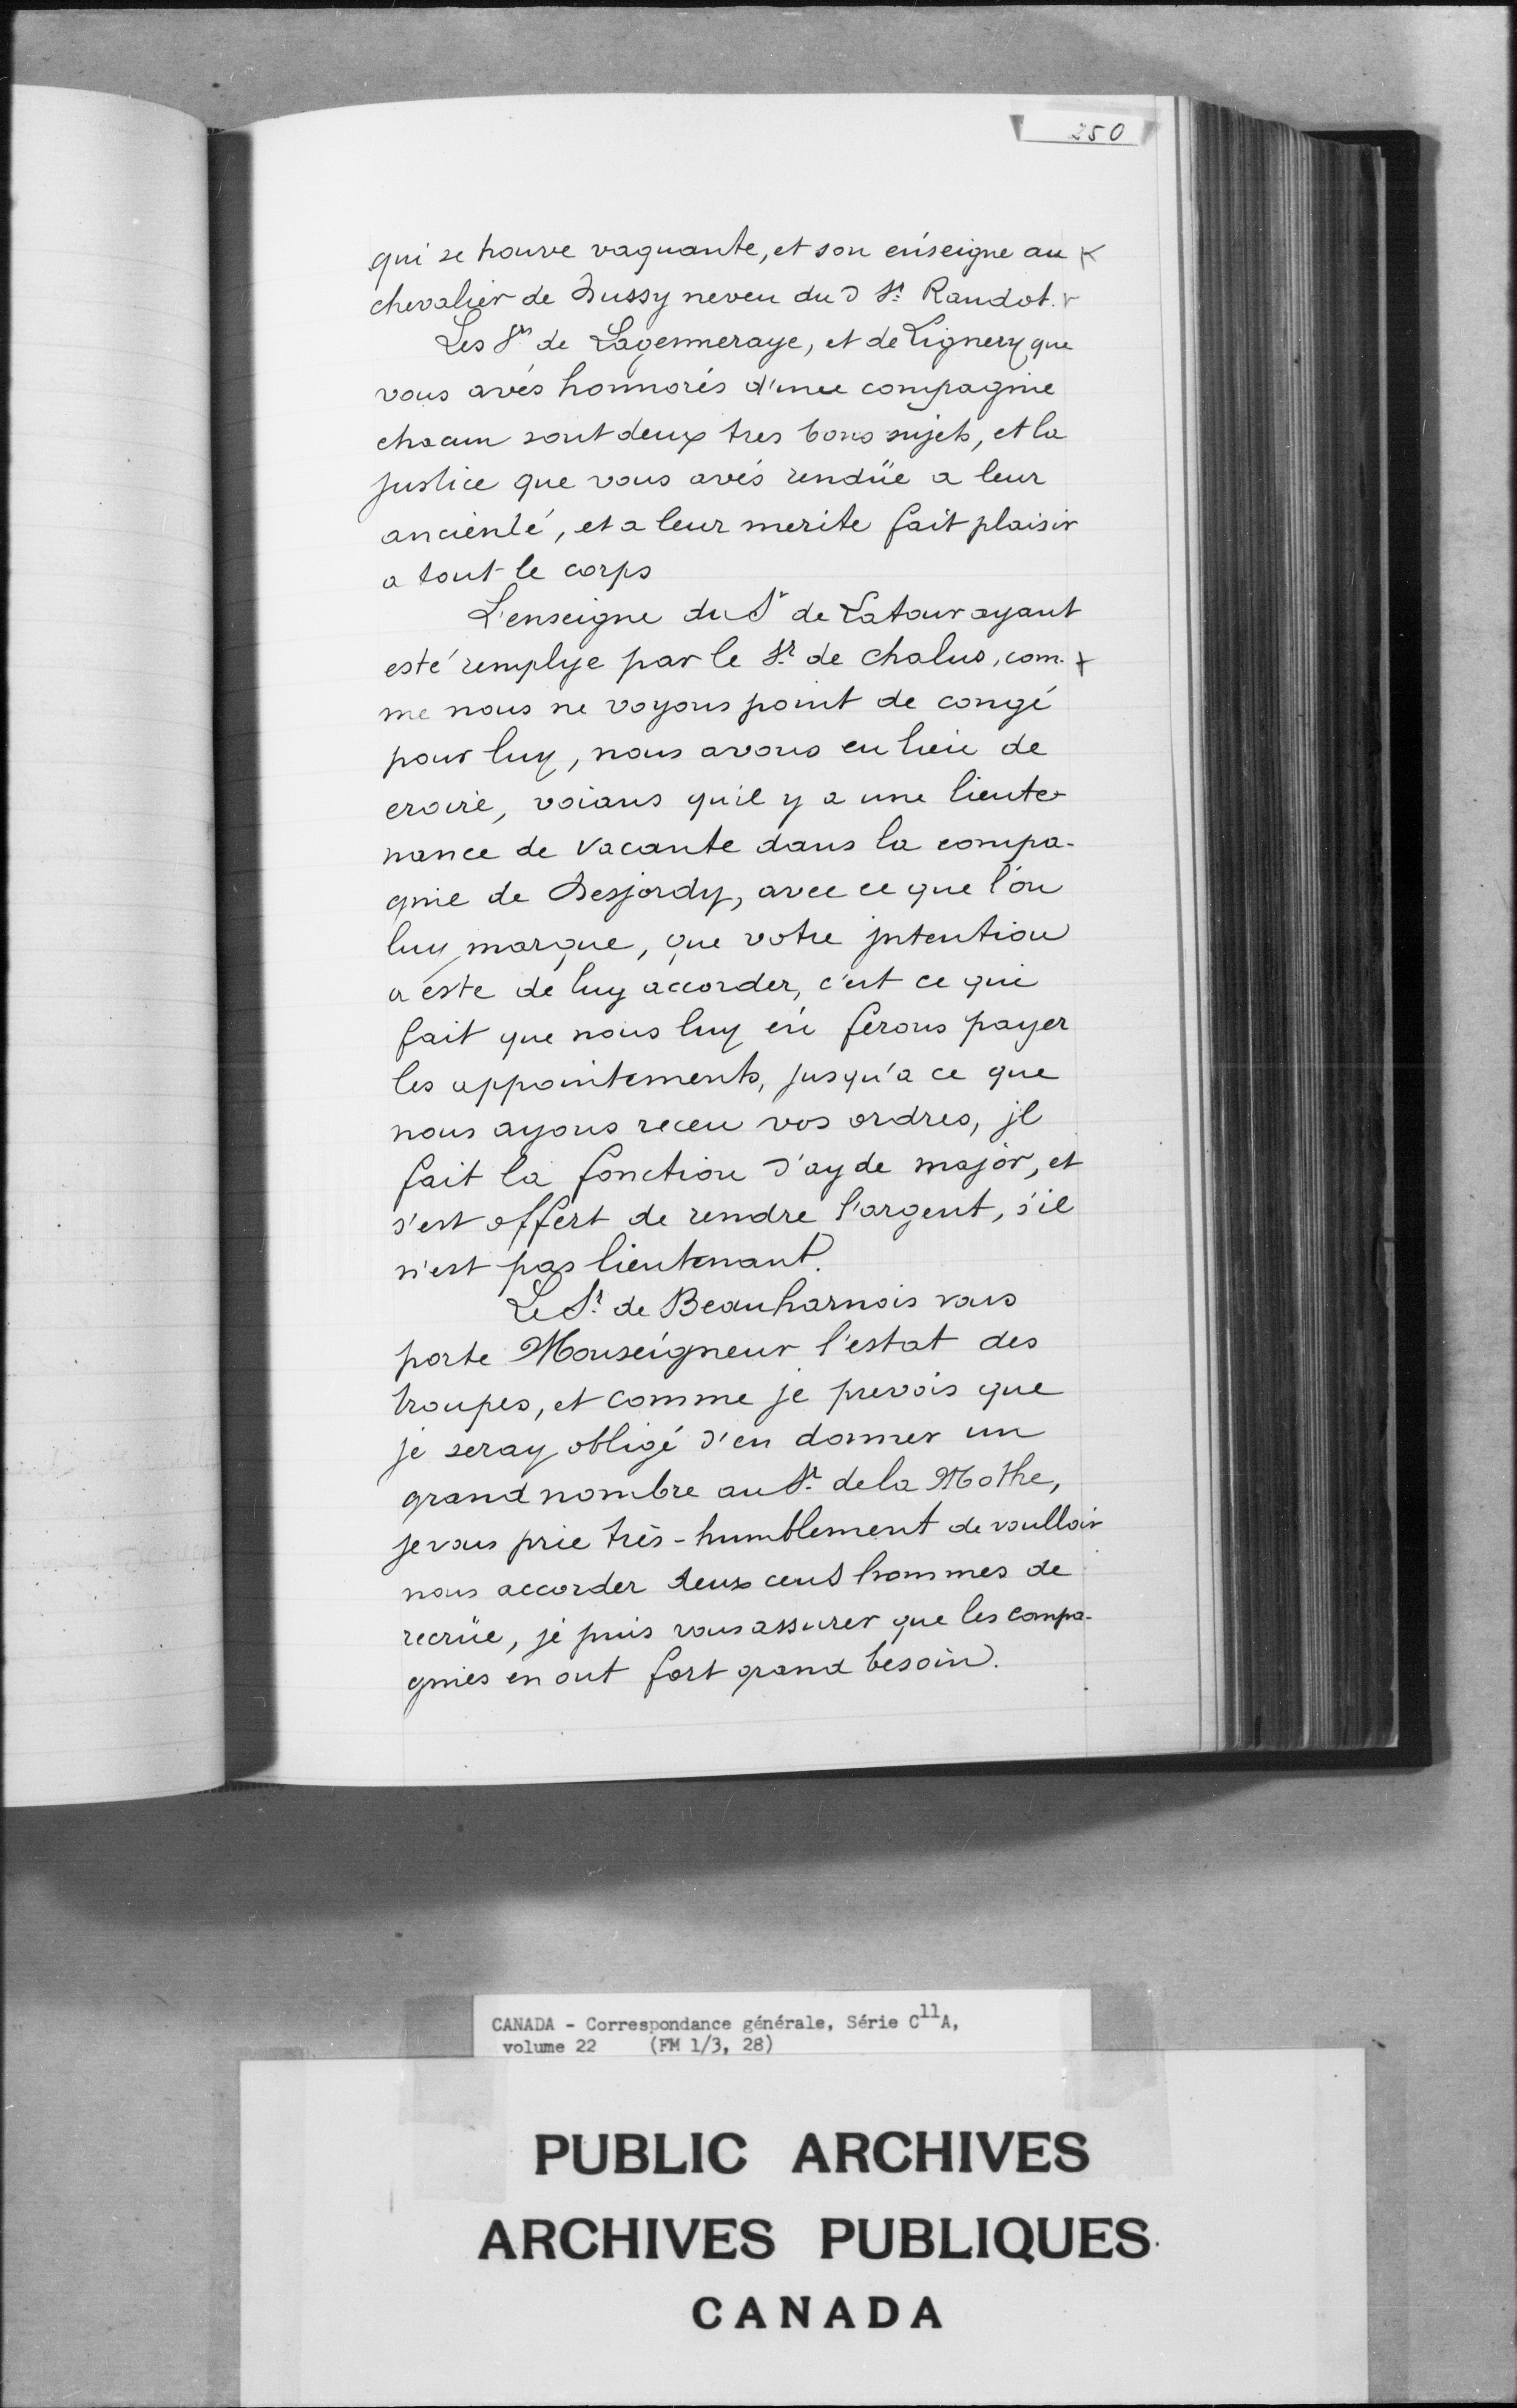 250
qui se trouve vaquante, et son enseigne au x
chevalier de Dussy neveu du d Sr. Raudot.
Les Srs de Lagemmeraye, et de Lignery que
vous avés honnorés d'une compagnie
chacun sont deux tres bons sujets, et la
justice que vous avés rendüe a leur
ancienté, et a leur merite fait plaisir
a tout le corps
L'enseigne du Sr de Latour ayant
esté remplye par le Sr. de chalus, com- x
me nous ne voyons point de congé
pour luy, nous avons eu lieu de
croire, voians qu'il y a une lieute-
nance de vacante dans la compa-
gnie de Desjordy, avec ce que l'on
luy marque, que votre jntention
a este de luy accorder, c'est ce qui
fait que nous luy en ferons payer
les appointements, jusqu'a ce que
nous ayons receu vos ordres, jl
fait la fonction d'ayde major, et
s'est offert de rendre l'argent, s'il
n'est pas lieutenant.
Le Sr. de Beauharnois vous
porte Monseigneur l'estat des
troupes, et comme je prevois que
je seray obligé d'en donner un
grand nombre au Sr. de la Mothe,
je vous prie très-humblement de voulloir
nous accorder deux cens hommes de
recrüe, je puis vous assurer que les compa-
gnies en ont fort grand besoin.
CANADA - Correspondance générale, Série C11A,
volume 22 (FM 1/3, 28)
PUBLIC ARCHIVES
ARCHIVES PUBLIQUES
CANADA